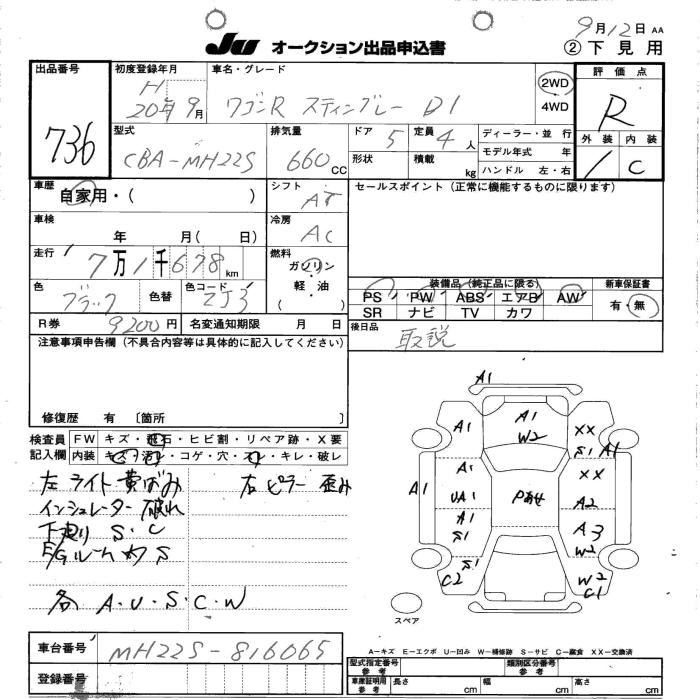 9月12日 AA
JU オークション出品申込書
② 下見用
出品番号
736
初度登録年月
H 20年 9月
車名・グレード
ワゴンR スティングレー DI
2WD
4WD
評価点
R
外装 内装
1 C
型式
CBA-MH22S
排気量
660 CC
ドア 5
形状
定員 4人
積載 kg
ディーラー・並行
モデル年式 年
ハンドル 左・右
車歴
自家用・( )
シフト
AT
セールスポイント(正常に機能するものに限ります)
車検
年 月( 日)
冷房
AC
走行
7万1千678km
燃料
ガソリン
軽・油
( )
色
ブラック
色替
色コード
ZJ3
装備品(純正品に限る)
PS PW ABS エアB AW
SR ナビ TV カワ
新車保証書
有・無
R券 9200円
名変通知期限 月 日
後日品
取説
注意事項申告欄(不具合内容等は具体的に記入してください)
修復歴 有 〔箇所 〕
検査員記入欄
FW キズ・飛石・ヒビ割・リペア跡・X要
内装 キズ・汚レ・コゲ・穴・スレ・キレ・破レ
左 ライト 黄ばみ 右 ピラー 歪み
インシュレーター 破れ
下廻り S・C
E/Gルーム内 S
各 A・U・S・C・W
A1
A1 A1 XX
W2 S1 A1
A1 A1 XX
UA1 Pあせ A2
A1 A3
S1 W2
S1 W2
C2 C1
スペア
A-キズ E-エクボ U-凹み W-補修跡 S-サビ C-腐食 XX-交換済
車台番号
MH22S-816065
登録番号
型式指定番号 参考
類別区分番号 参考
車庫証明用 参考
長さ cm 幅 cm 高さ cm